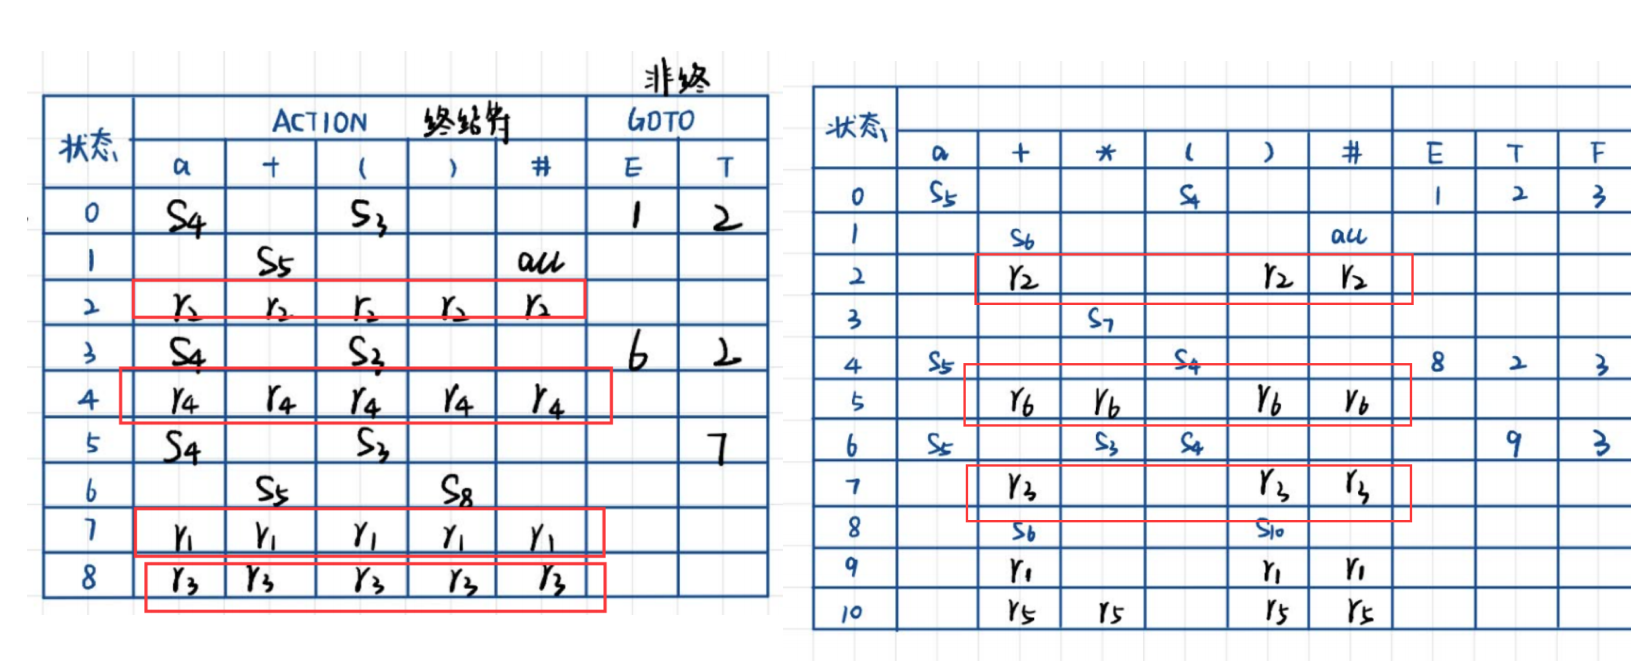 非终
状态 ACTION 终结符 GOTO
a + ( ) # E T
0 S4 S3 1 2
1 S5 acc
2 r2 r2 r2 r2 r2
3 S4 S3 6 2
4 r4 r4 r4 r4 r4
5 S4 S3 7
6 S5 S8
7 r1 r1 r1 r1 r1
8 r3 r3 r3 r3 r3
状态
a + * ( ) # E T F
0 S5 S4 1 2 3
1 S6 acc
2 r2 r2 r2
3 S7
4 S5 S4 8 2 3
5 r6 r6 r6 r6
6 S5 S3 S4 9 3
7 r3 r3 r3
8 S6 S10
9 r1 r1 r1
10 r5 r5 r5 r5